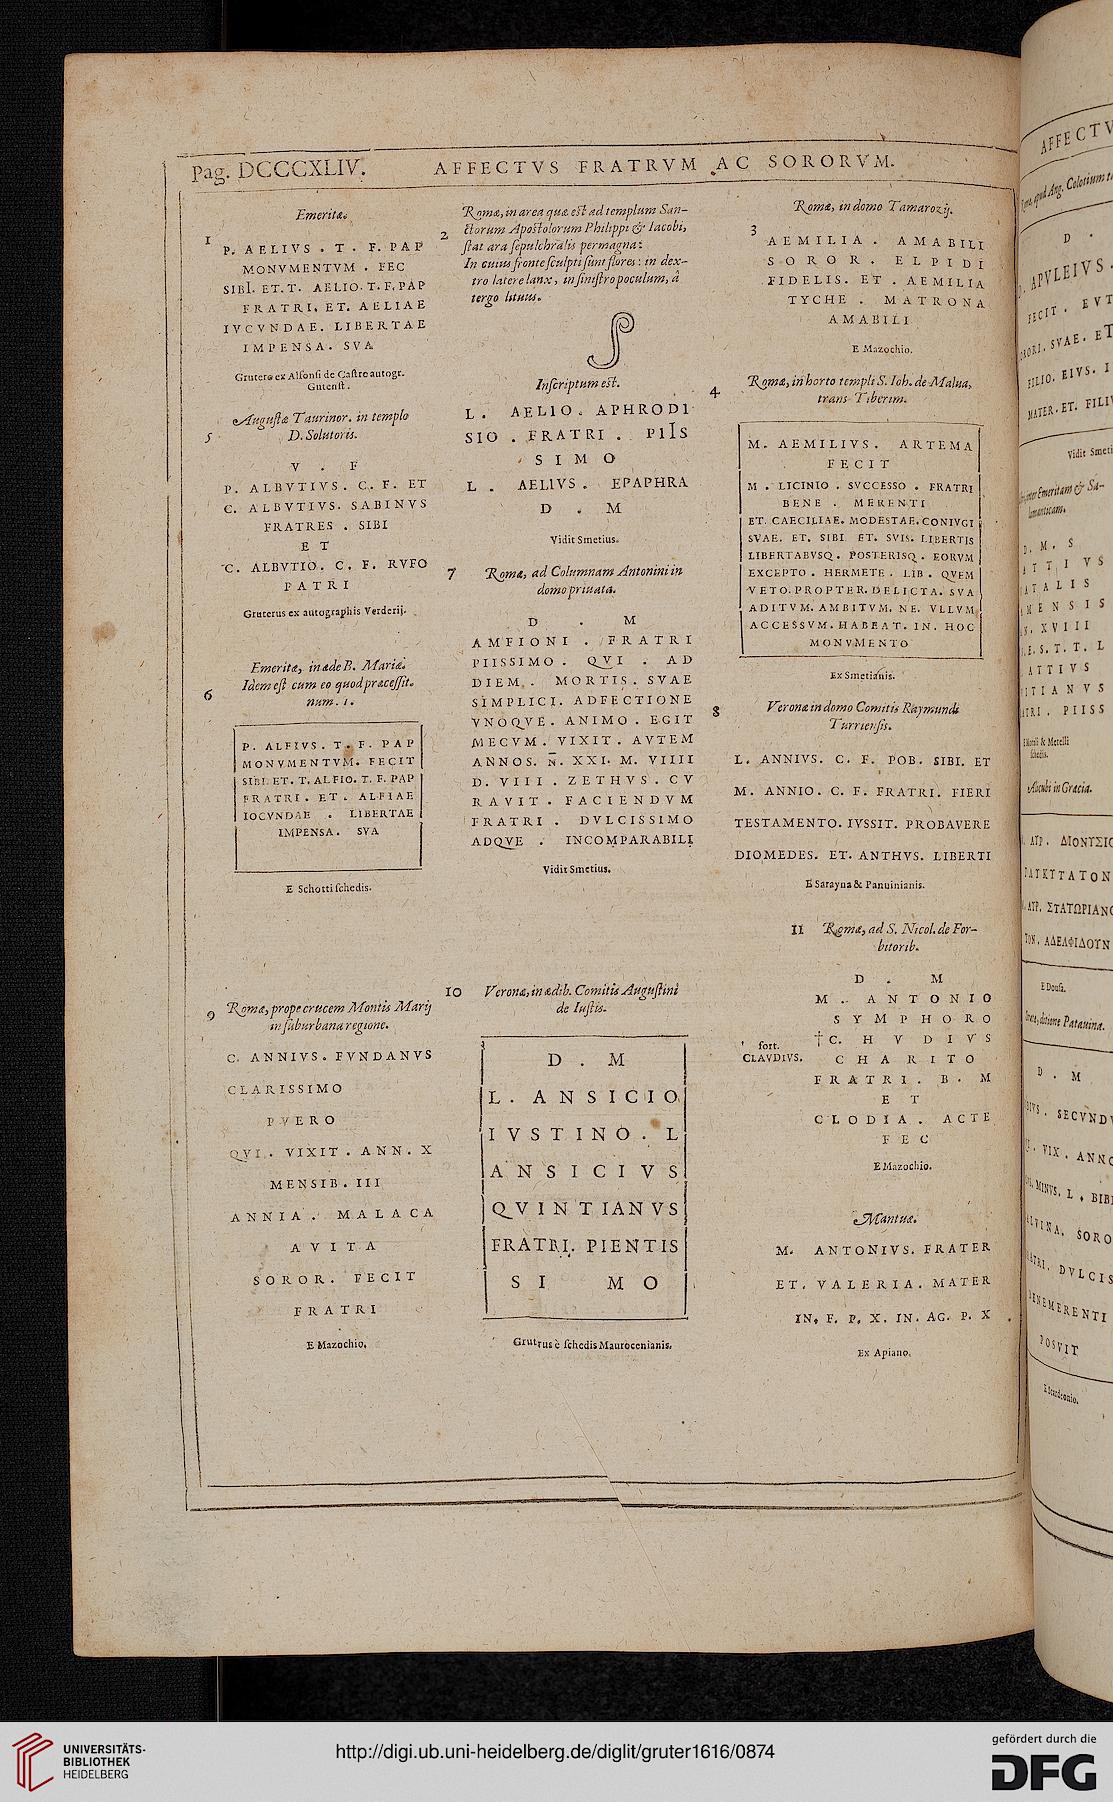 Pag. DCCCXLIV.
AFFECTVS FRATRVM AC SORORVM.
Emeritæ.
1
P. AELIVS . T . F. PAP
MONVMENTVM . FEC
SIBI. ET. T. AELIO. T. F. PAP
FRATRI. ET. AELIAE
IVCVNDAE. LIBERTAE
IMPENSA. SVA
Gruterº ex Alfonsi de Castre autogr.
Gutenst.
5
Augustæ Taurinor. in templo
D. Solutoris.
V . F
P. ALBVTIVS. C. F. ET
C. ALBVTIVS. SABINVS
FRATRES . SIBI
E T
C. ALBVTIO. C. F. RVFO
PATRI
Gruterus ex autographis Verderij.
6
Emeritæ, in æde B. Mariæ.
Idem est cum eo quod præcessit.
num. 1.
P. ALFIVS. T. F. PAP
MONVMENTVM. FECIT
SIBI. ET. T. ALFIO. T. F. PAP
FRATRI. ET. ALFIAE
IOCVNDAE . LIBERTAE
IMPENSA. SVA
E Schotti schedis.
9
Romæ, prope crucem Montis Marij
in suburbana regione.
C. ANNIVS. FVNDANVS
CLARISSIMO
PVERO
QVI. VIXIT. ANN. X
MENSIB. III
ANNIA. MALACA
AVITA
SOROR. FECIT
FRATRI
E Mazochio.
2
Romæ, in area quæ est ad templum San-
ctorum Apostolorum Philippi & Iacobi,
stat ara sepulchralis permagna:
In cuius fronte sculpti sunt flores: in dex-
tro latere lanx, in sinistro poculum, à
tergo lituus.
Inscriptum est.
L. AELIO. APHRODI
SIO . FRATRI . PIIS
SIMO
L . AELIVS. EPAPHRA
D . M
Vidit Smetius.
7
Romæ, ad Columnam Antonini in
domo priuata.
D . M
AMFIONI . FRATRI
PIISSIMO. QVI . AD
DIEM. MORTIS. SVAE
SIMPLICI. ADFECTIONE
VNOQVE. ANIMO. EGIT
MECVM. VIXIT. AVTEM
ANNOS. N̄. XXI. M. VIIII
D. VIII . ZETHVS . CV
RAVIT . FACIENDVM
FRATRI . DVLCISSIMO
ADQVE . INCOMPARABILI
Vidit Smetius.
10
Veronæ, in ædib. Comitis Augustini
de Iustis.
D . M
L. ANSICIO
IVSTINO. L
ANSICIVS
QVINTIANVS
FRATRI. PIENTIS
SI MO
Grutrus è schedis Maurocenianis.
3
Romæ, in domo Tamarozij.
AEMILIA . AMABILI
SOROR. ELPIDI
FIDELIS. ET . AEMILIA
TYCHE . MATRONA
AMABILI
E Mazochio.
4
Romæ, in horto templi S. Ioh. de Malua,
trans Tiberim.
M. AEMILIVS. ARTEMA
FECIT
M . LICINIO . SVCCESSO . FRATRI
BENE . MERENTI
ET. CAECILIAE. MODESTAE. CONIVGI
SVAE. ET. SIBI. ET. SVIS. LIBERTIS
LIBERTABVSQ. POSTERISQ. EORVM
EXCEPTO. HERMETE. LIB. QVEM
VETO. PROPTER. DELICTA. SVA
ADITVM. AMBITVM. NE. VLLVM
ACCESSVM. HABEAT. IN. HOC
MONVMENTO
Ex Smetianis.
8
Veronæ in domo Comitis Raymundi
Turriensis.
L. ANNIVS. C. F. POB. SIBI. ET
M. ANNIO. C. F. FRATRI. FIERI
TESTAMENTO. IVSSIT. PROBAVERE
DIOMEDES. ET. ANTHVS. LIBERTI
E Sarayna & Panuinianis.
11
Romæ, ad S. Nicol. de For-
bitorib.
D . M
M. ANTONIO
SYMPHORO
† C. HVDIVS
† fort.
CLAVDIVS.
CHARITO
FRATRI. B. M
E T
CLODIA. ACTE
FEC
E Mazochio.
Mantuæ.
M. ANTONIVS. FRATER
ET. VALERIA. MATER
IN. F. P. X. IN. AG. P. X
Ex Apiano.
AFFECTV
D .
APVLEIVS.
FECIT. EVT
SORORI. SVAE. ET
FILIO. EIVS. I
MATER. ET. FILI
Vidit Smeti
D. M. S
ATTIVS
ATALIS
MENSIS
XVIII
E. S. T. T. L
ATTIVS
ITIANVS
ATRI. PIISS
E Morali & Metelli
schedis.
Abcubi in Græcia.
ΑΥΡ. ΔΙΟΝΥΣΙΟ
ΑΥΡ. ΣΤΑΤΩΡΙΑΝΟ
ΤΟΝ. ΑΔΕΛΦΙΔΟΥΝ
E Dousa.
ditione Patauina.
D . M
SECVND
VIX. ANNO
L. BIBI
SORO
DVLCIS
BENEMERENTI
POSVIT
E Scardeonio.
UNIVERSITÄTS-
BIBLIOTHEK
HEIDELBERG
http://digi.ub.uni-heidelberg.de/diglit/gruter1616/0874
gefördert durch die
DFG